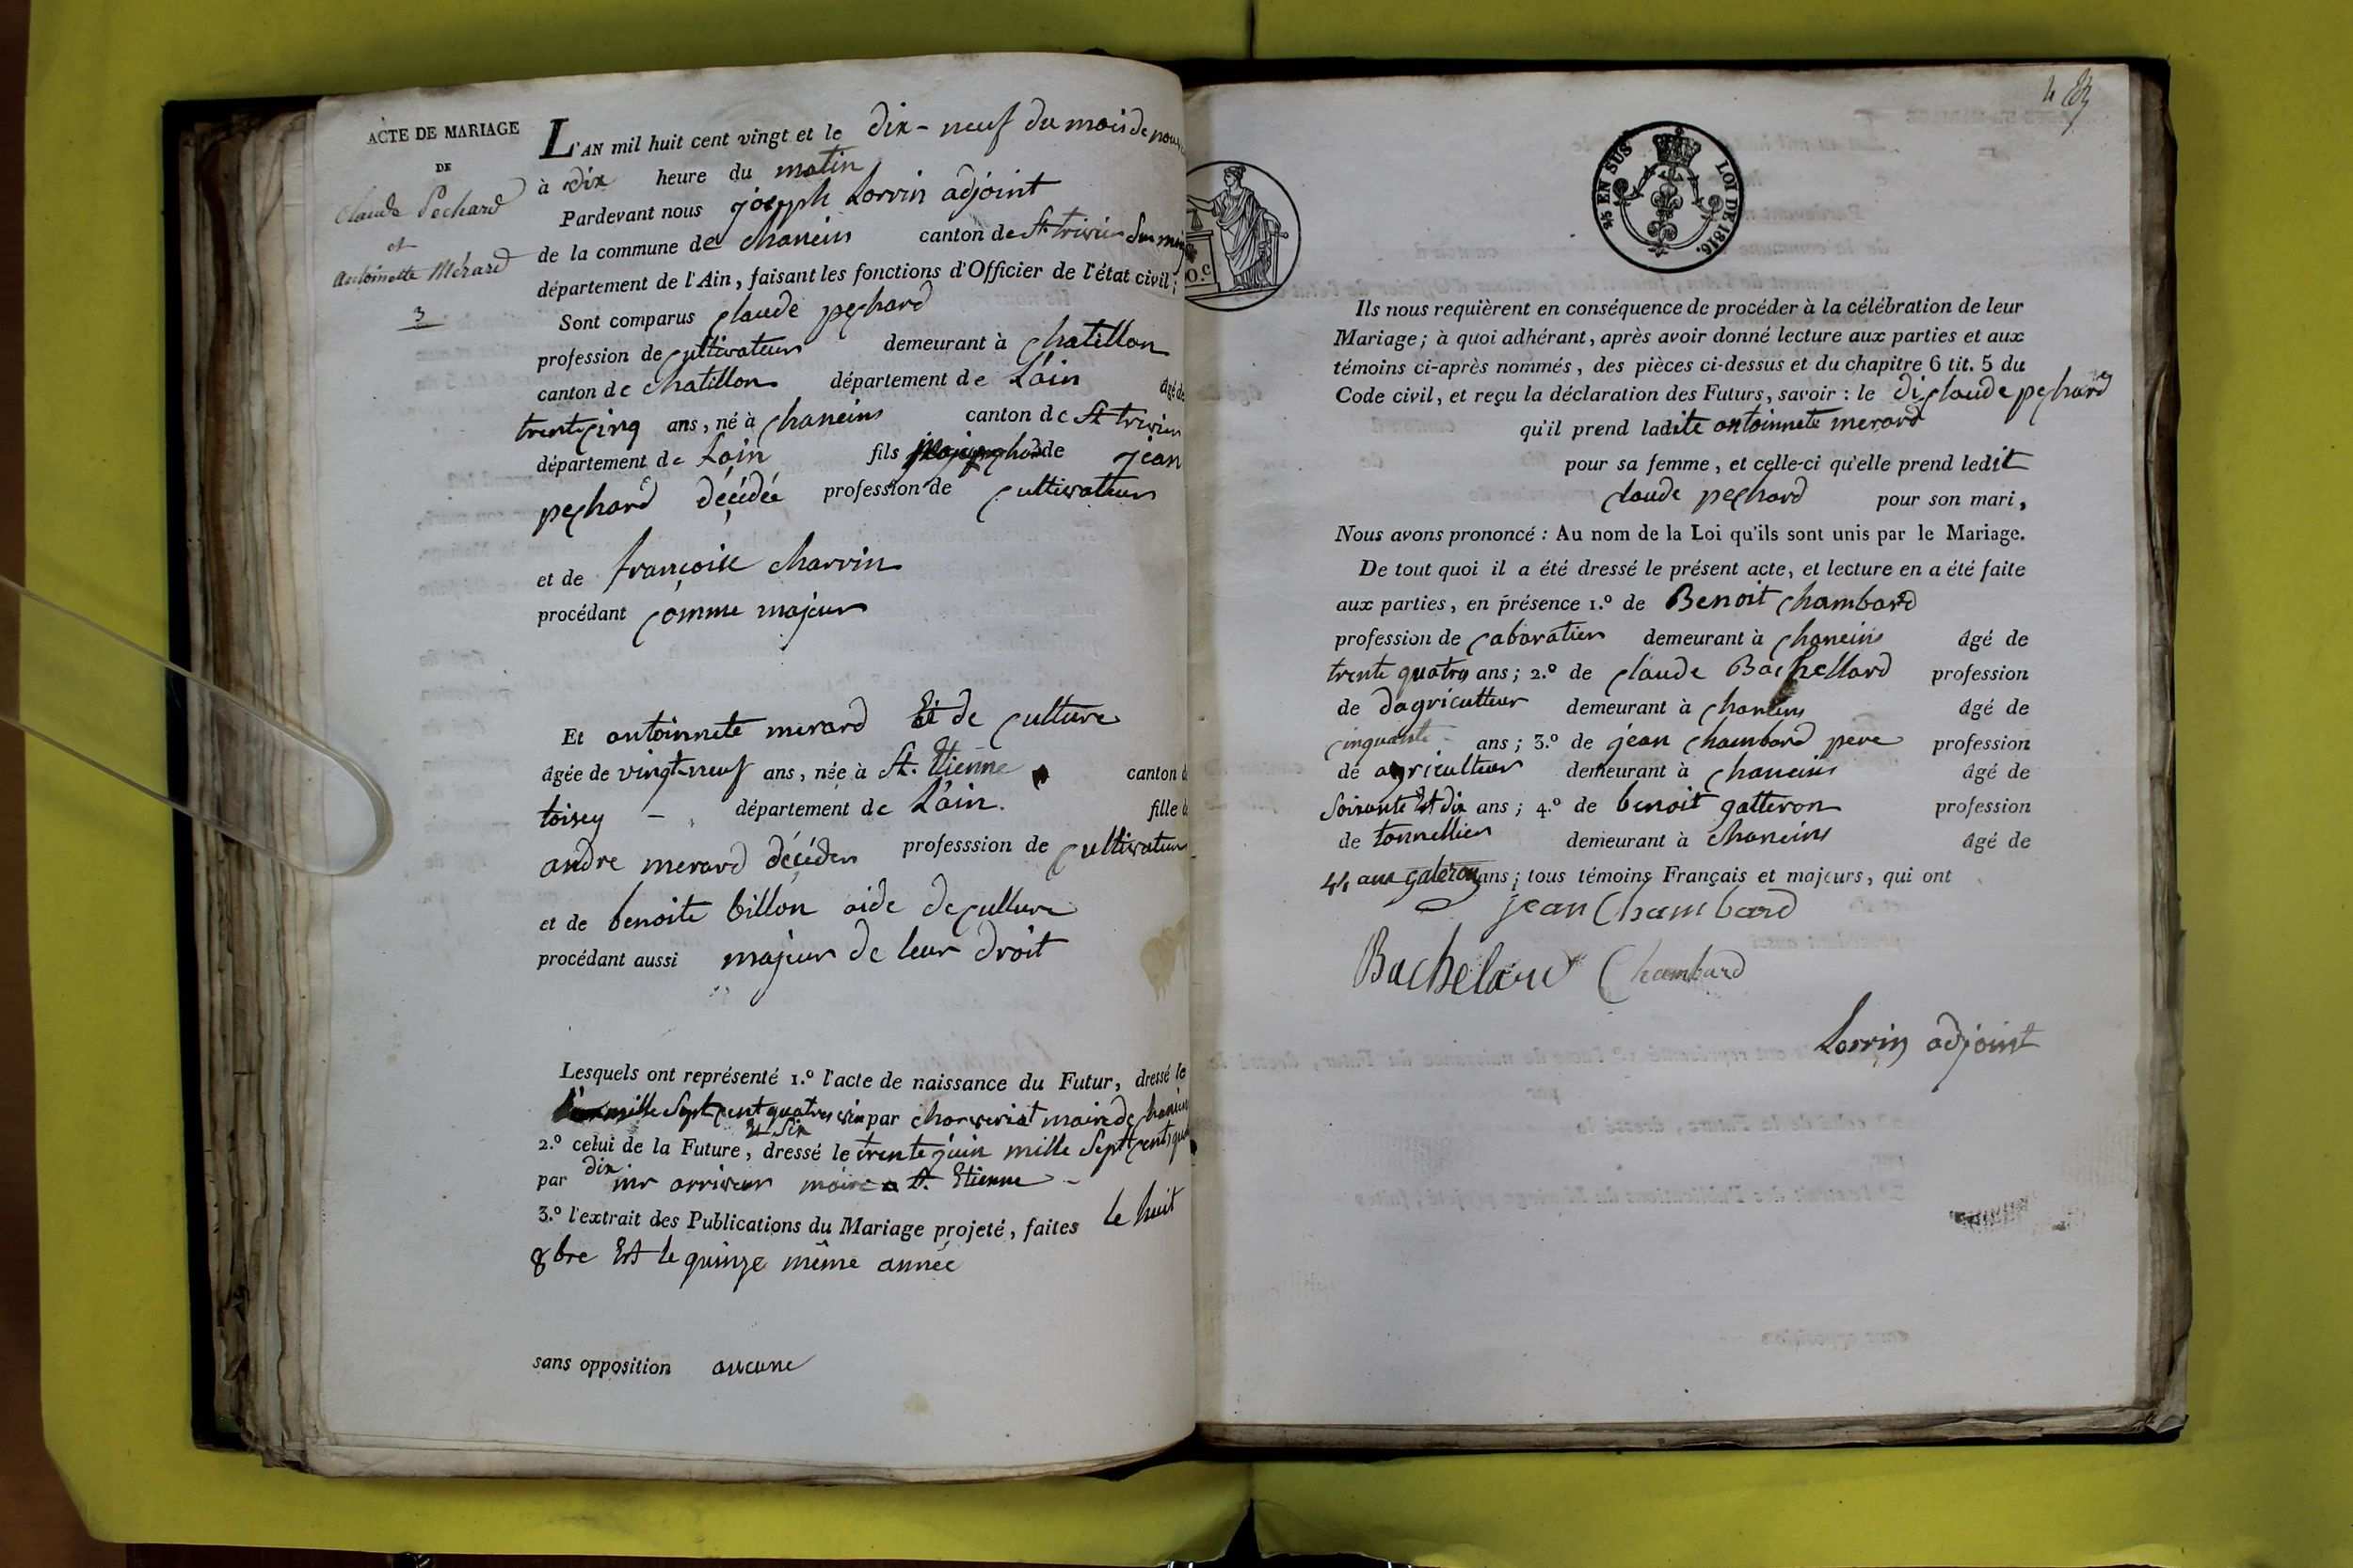 ACTE DE MARIAGE
DE
Claude Pechard
et
Antoinette Mérard
3
L'AN mil huit cent vingt et le dix-neuf du mois de
à dix heure du matin
Pardevant nous joseph Lorrin adjoint
de la commune de chaneins canton de St. trivier Sur
département de l'Ain, faisant les fonctions d'Officier de l'état civil;
Sont comparus claude pechard
profession de cultivateur demeurant à chatillon
canton de chatillon département de L'ain âgé de
trente cinq ans, né à chaneins canton de St trivier
département de Lain fils de jean
pechard décédée profession de cultivateur
et de françoise charvin
procédant comme majeur
Et antoinnete merard de culture
âgée de vingt-neuf ans, née à St. Etienne canton
toisey département de L'ain. fille
andre merard décéder professsion de cultivateur
et de benoite billon aide de culture
procédant aussi majeur de leur droit
Lesquels ont représenté 1.º l'acte de naissance du Futur, dressé le
mille Sept cent quatres vin par maire de chaneins
Et Six
2.º celui de la Future, dressé le trente juin mille Sept cent
dix
par maire a St. Etienne
3.º l'extrait des Publications du Mariage projeté, faites le huit
8bre Et le quinze même année
sans opposition aucune
EN SUS LOI DE 1816.
Ils nous requièrent en conséquence de procéder à la célébration de leur
Mariage; à quoi adhérant, après avoir donné lecture aux parties et aux
témoins ci-après nommés, des pièces ci-dessus et du chapitre 6 tit. 5 du
Code civil, et reçu la déclaration des Futurs, savoir : le di claude pechard
qu'il prend ladite antoinnete merard
pour sa femme, et celle-ci qu'elle prend ledit
claude pechard pour son mari,
Nous avons prononcé : Au nom de la Loi qu'ils sont unis par le Mariage.
De tout quoi il a été dressé le présent acte, et lecture en a été faite
aux parties, en présence 1.º de Benoit chambard
profession de cabaratier demeurant à chaneins âgé de
trente quatre ans; 2.º de claude Bachellard profession
de dagriculteur demeurant à chaneins âgé de
cinquante ans; 3.º de jean chambard pere profession
de agriculteur demeurant à chaneins âgé de
Soixante Et dix ans; 4.º de benoit galleron profession
de tonnellier demeurant à chaneins âgé de
44 ans galeron ans; tous témoins Français et majeurs, qui ont
jean Chambard
Bachelard Chambard
Lorrin adjoint